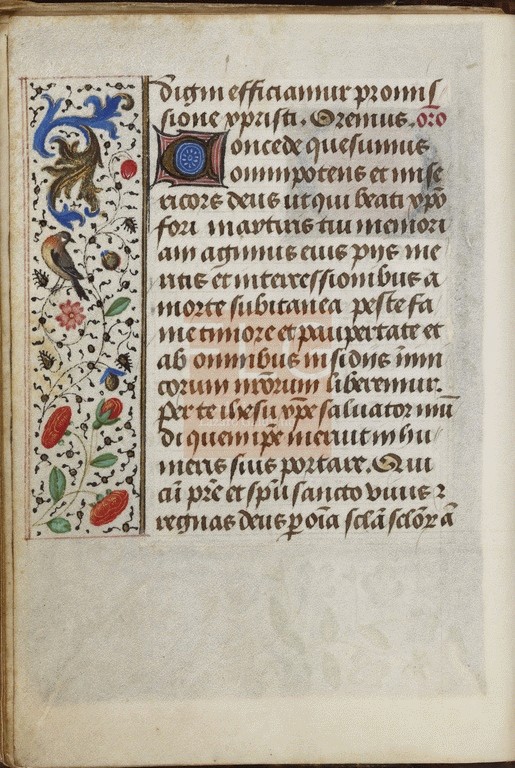 digni efficiamur promis
sione xpristi. Oremus. oro
Concede quesumus
omnipotens et mise
ricors deus ut qui beati xpo
fori martiris tui memori
am agimus eius pijs me
ritis et intercessionibus a
morte subitanea peste fa
me timore et paupertate et
ab omnibus insidijs inim
corum nrorum liberemur.
Per te ihesu xpe saluator mu
di quem ipe meruit in hu
meris suis portare. Qui
cu pre et spu sancto viuis 2
regnas deus p oia scla sclor a